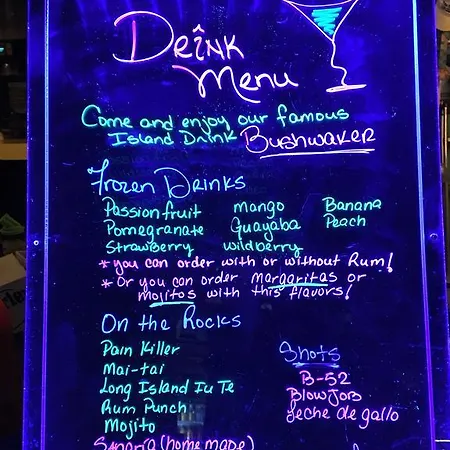 Drink
Menu
Come and enjoy our famous
Island Drink Bushwaker
Frozen Drinks
Passionfruit mango Banana
Pomegranate Guayaba Peach
Strawberry wildberry
* you can order with or without Rum!
* Or you can order margaritas or
mojitos with this flavors!
On the Rocks
Pain Killer
Mai-tai
Long Island Iu Te
Rum Punch
Mojito
Sangria (homemade)
Shots
B-52
Blow Job
Leche de gallo